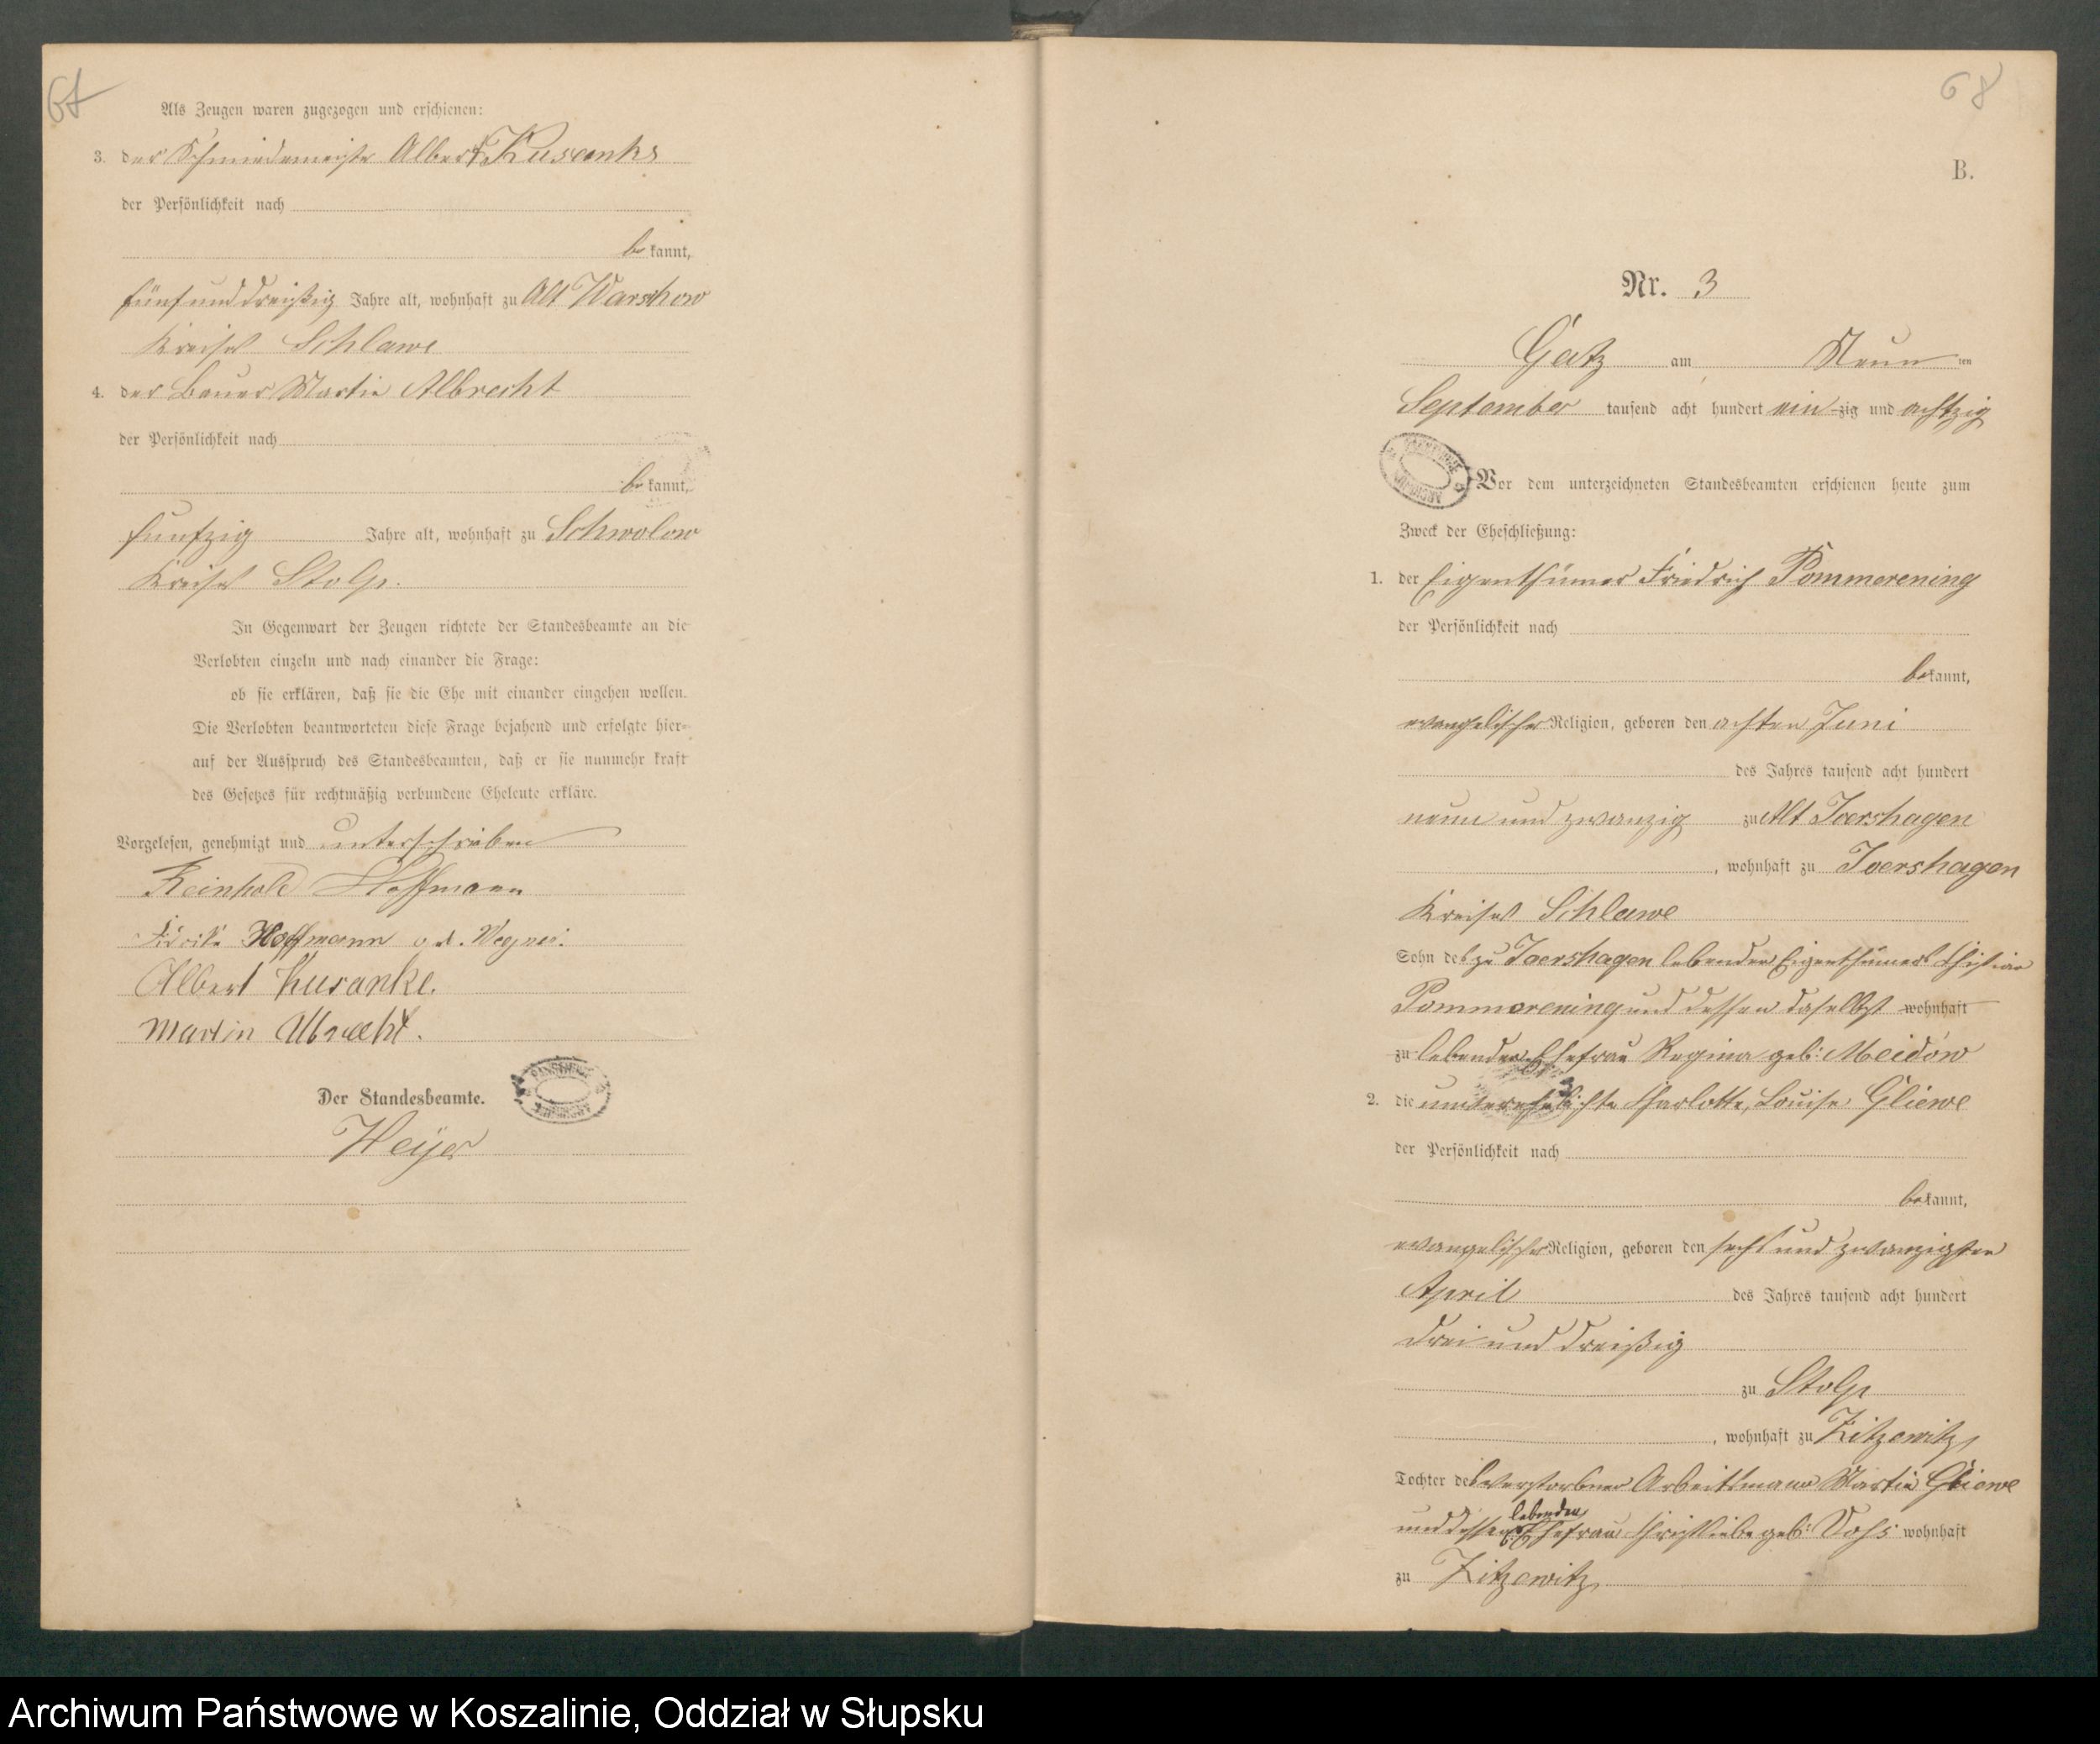 67
Als Zeugen waren zugezogen und erschienen:
3. der Schmiedemeister Albert Kusanke
der Persönlichkeit nach
be kannt,
fünfunddreißig Jahre alt, wohnhaft zu Alt Warschow
Kreises Schlawe
4. der Bauer Martin Albrecht
der Persönlichkeit nach
be kannt,
funfzig Jahre alt, wohnhaft zu Schwolow
Kreises Stolp.
In Gegenwart der Zeugen richtete der Standesbeamte an die
Verlobten einzeln und nach einander die Frage:
ob sie erklären, daß sie die Ehe mit einander eingehen wollen.
Die Verlobten beantworteten diese Frage bejahend und erfolgte hier-
auf der Ausspruch des Standesbeamten, daß er sie nunmehr kraft
des Gesetzes für rechtmäßig verbundene Eheleute erkläre.
Vorgelesen, genehmigt und unterschrieben
Reinhold Hoffmann
Hoffmann geb. Wegner.
Albert Kusanke.
Martin Albrecht.
Der Standesbeamte.
Heyer
68
B.
Nr. 3
Gatz am Neun ten
September tausend acht hundert ein zig und achtzig
Vor dem unterzeichneten Standesbeamten erschienen heute zum
Zweck der Eheschließung:
1. der Eigenthümer Friedrich Pommerening
der Persönlichkeit nach
be kannt,
evangelischer Religion, geboren den achten Juni
des Jahres tausend acht hundert
neun und zwanzig zu Alt Jaershagen
, wohnhaft zu Jaershagen
Kreises Schlawe
Sohn des zu Jaershagen lebenden Eigenthümers Christian
Pommerening und dessen daselbst wohnhaft
zu lebenden Ehefrau Regina geb: Meidow
2. die unverehelichte Charlotte, Louise Gliewe
der Persönlichkeit nach
be kannt,
evangelischer Religion, geboren den sechs und zwanzigsten
April des Jahres tausend acht hundert
drei und dreißig
zu Stolp
, wohnhaft zu Zitzewitz
Tochter des verstorbenen Arbeitsmann Martin Gliewe
und dessen lebenden Ehefrau geb: wohnhaft
zu Zitzewitz
Archiwum Państwowe w Koszalinie, Oddział w Słupsku